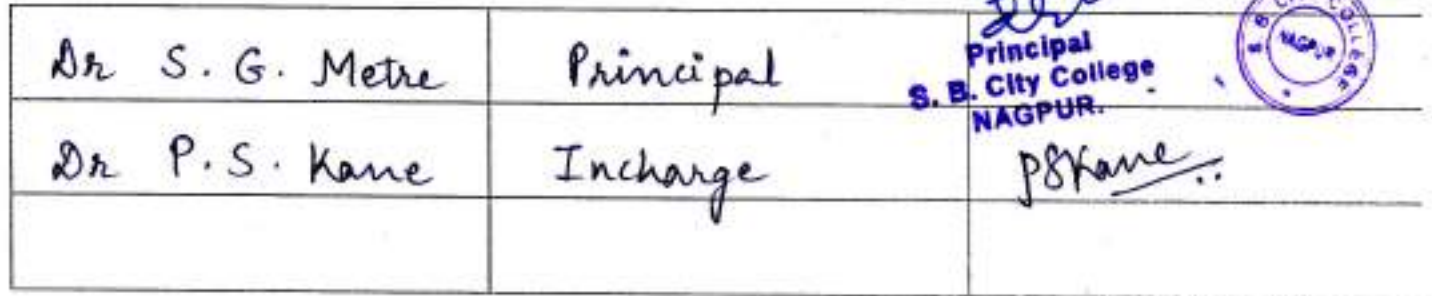 Dr S. G. Metre Principal
Principal
S. B. City College
NAGPUR.
S. B. CITY COLLEGE
NAGPUR
Dr P. S. Kane Incharge PSKane